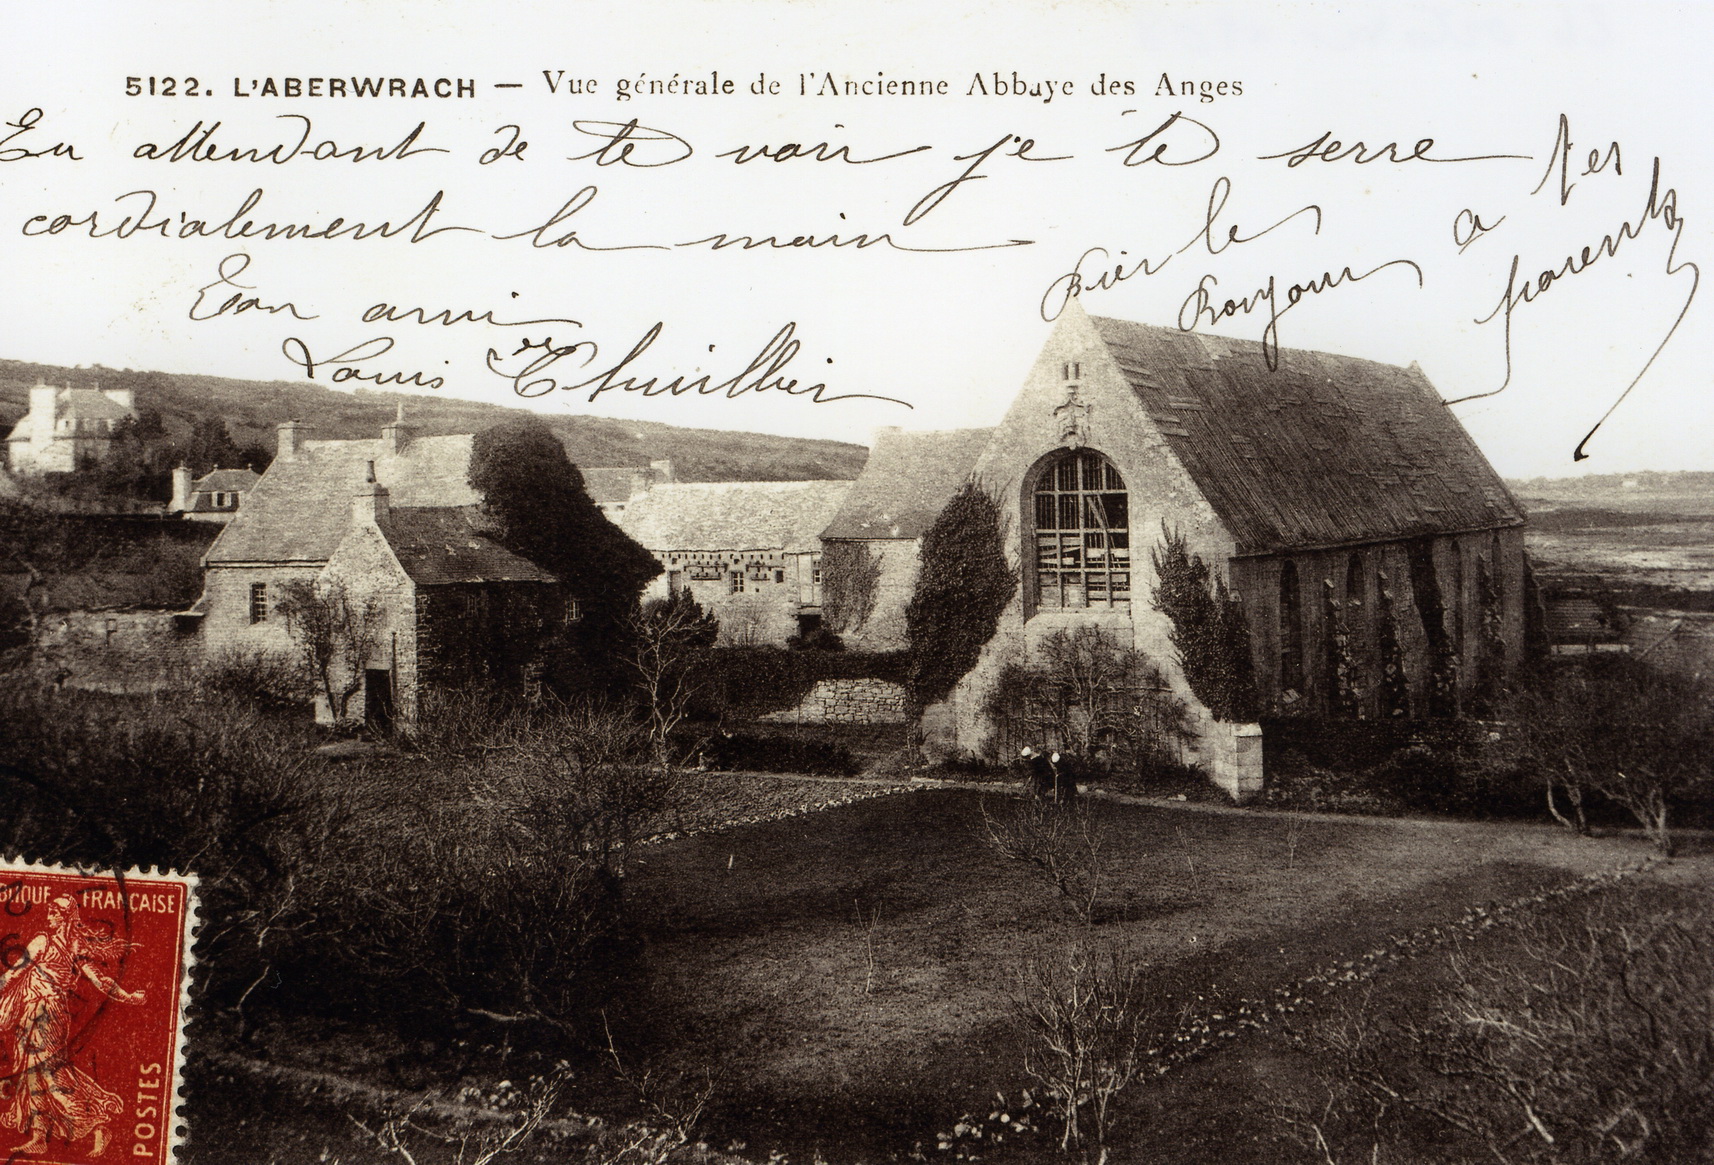 5122. L'ABERWRACH — Vue générale de l'Ancienne Abbaye des Anges
En attendant de te voir je te serre
cordialement la main
Ton ami
Louis Thuillier
Bien le
Bonjour a tes
parents
BLIQUE FRANÇAISE
POSTES